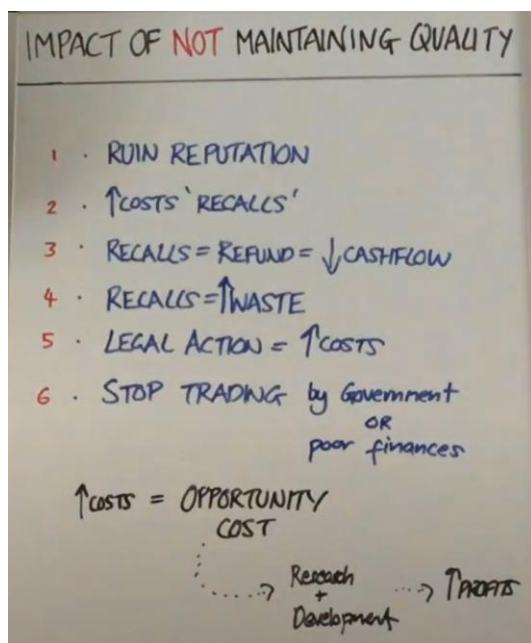 IMPACT OF NOT MAINTAINING QUALITY
1 · RUIN REPUTATION
2 · ↑COSTS 'RECALLS'
3 · RECALLS = REFUND = ↓CASHFLOW
4 · RECALLS = ↑WASTE
5 · LEGAL ACTION = ↑COSTS
6 · STOP TRADING by Government
OR
poor finances
↑COSTS = OPPORTUNITY
COST
Research
+
Development
↑PROFITS